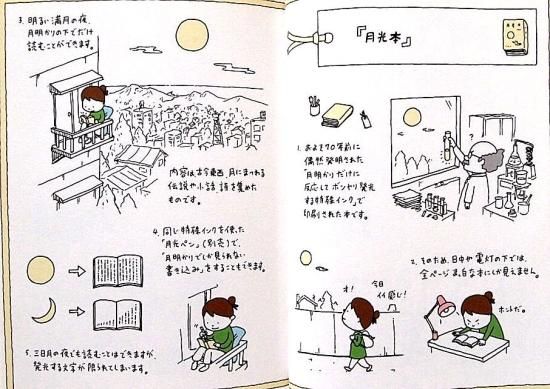 『月光本』
1. およそ70年前に
偶然発明された
「月明かりだけに
反応してボンヤリ発光
する特殊インク」で
印刷された本です。
?
2. そのため、日中や電灯の下では、
全ページまっ白な本にしか見えません。
ホントだ。
オ！
今日
イイ感じ！
3. 明るい満月の夜、
月明かりの下でだけ
読むことができます。
内容は古今東西、月にまつわる
伝説や小話、詩を集めた
ものです。
4. 同じ特殊インクを使った
「月光ペン」(別売)で、
「月明かりでしか見られない
書き込み」をすることもできます。
5. 三日月の夜でも読むことはできますが、
発光する文字が限られてしまいます。